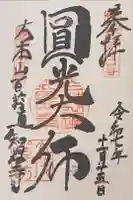 奉拝
令和七年
十一月十五日
圓光大師
大本山百萬遍
知恩寺